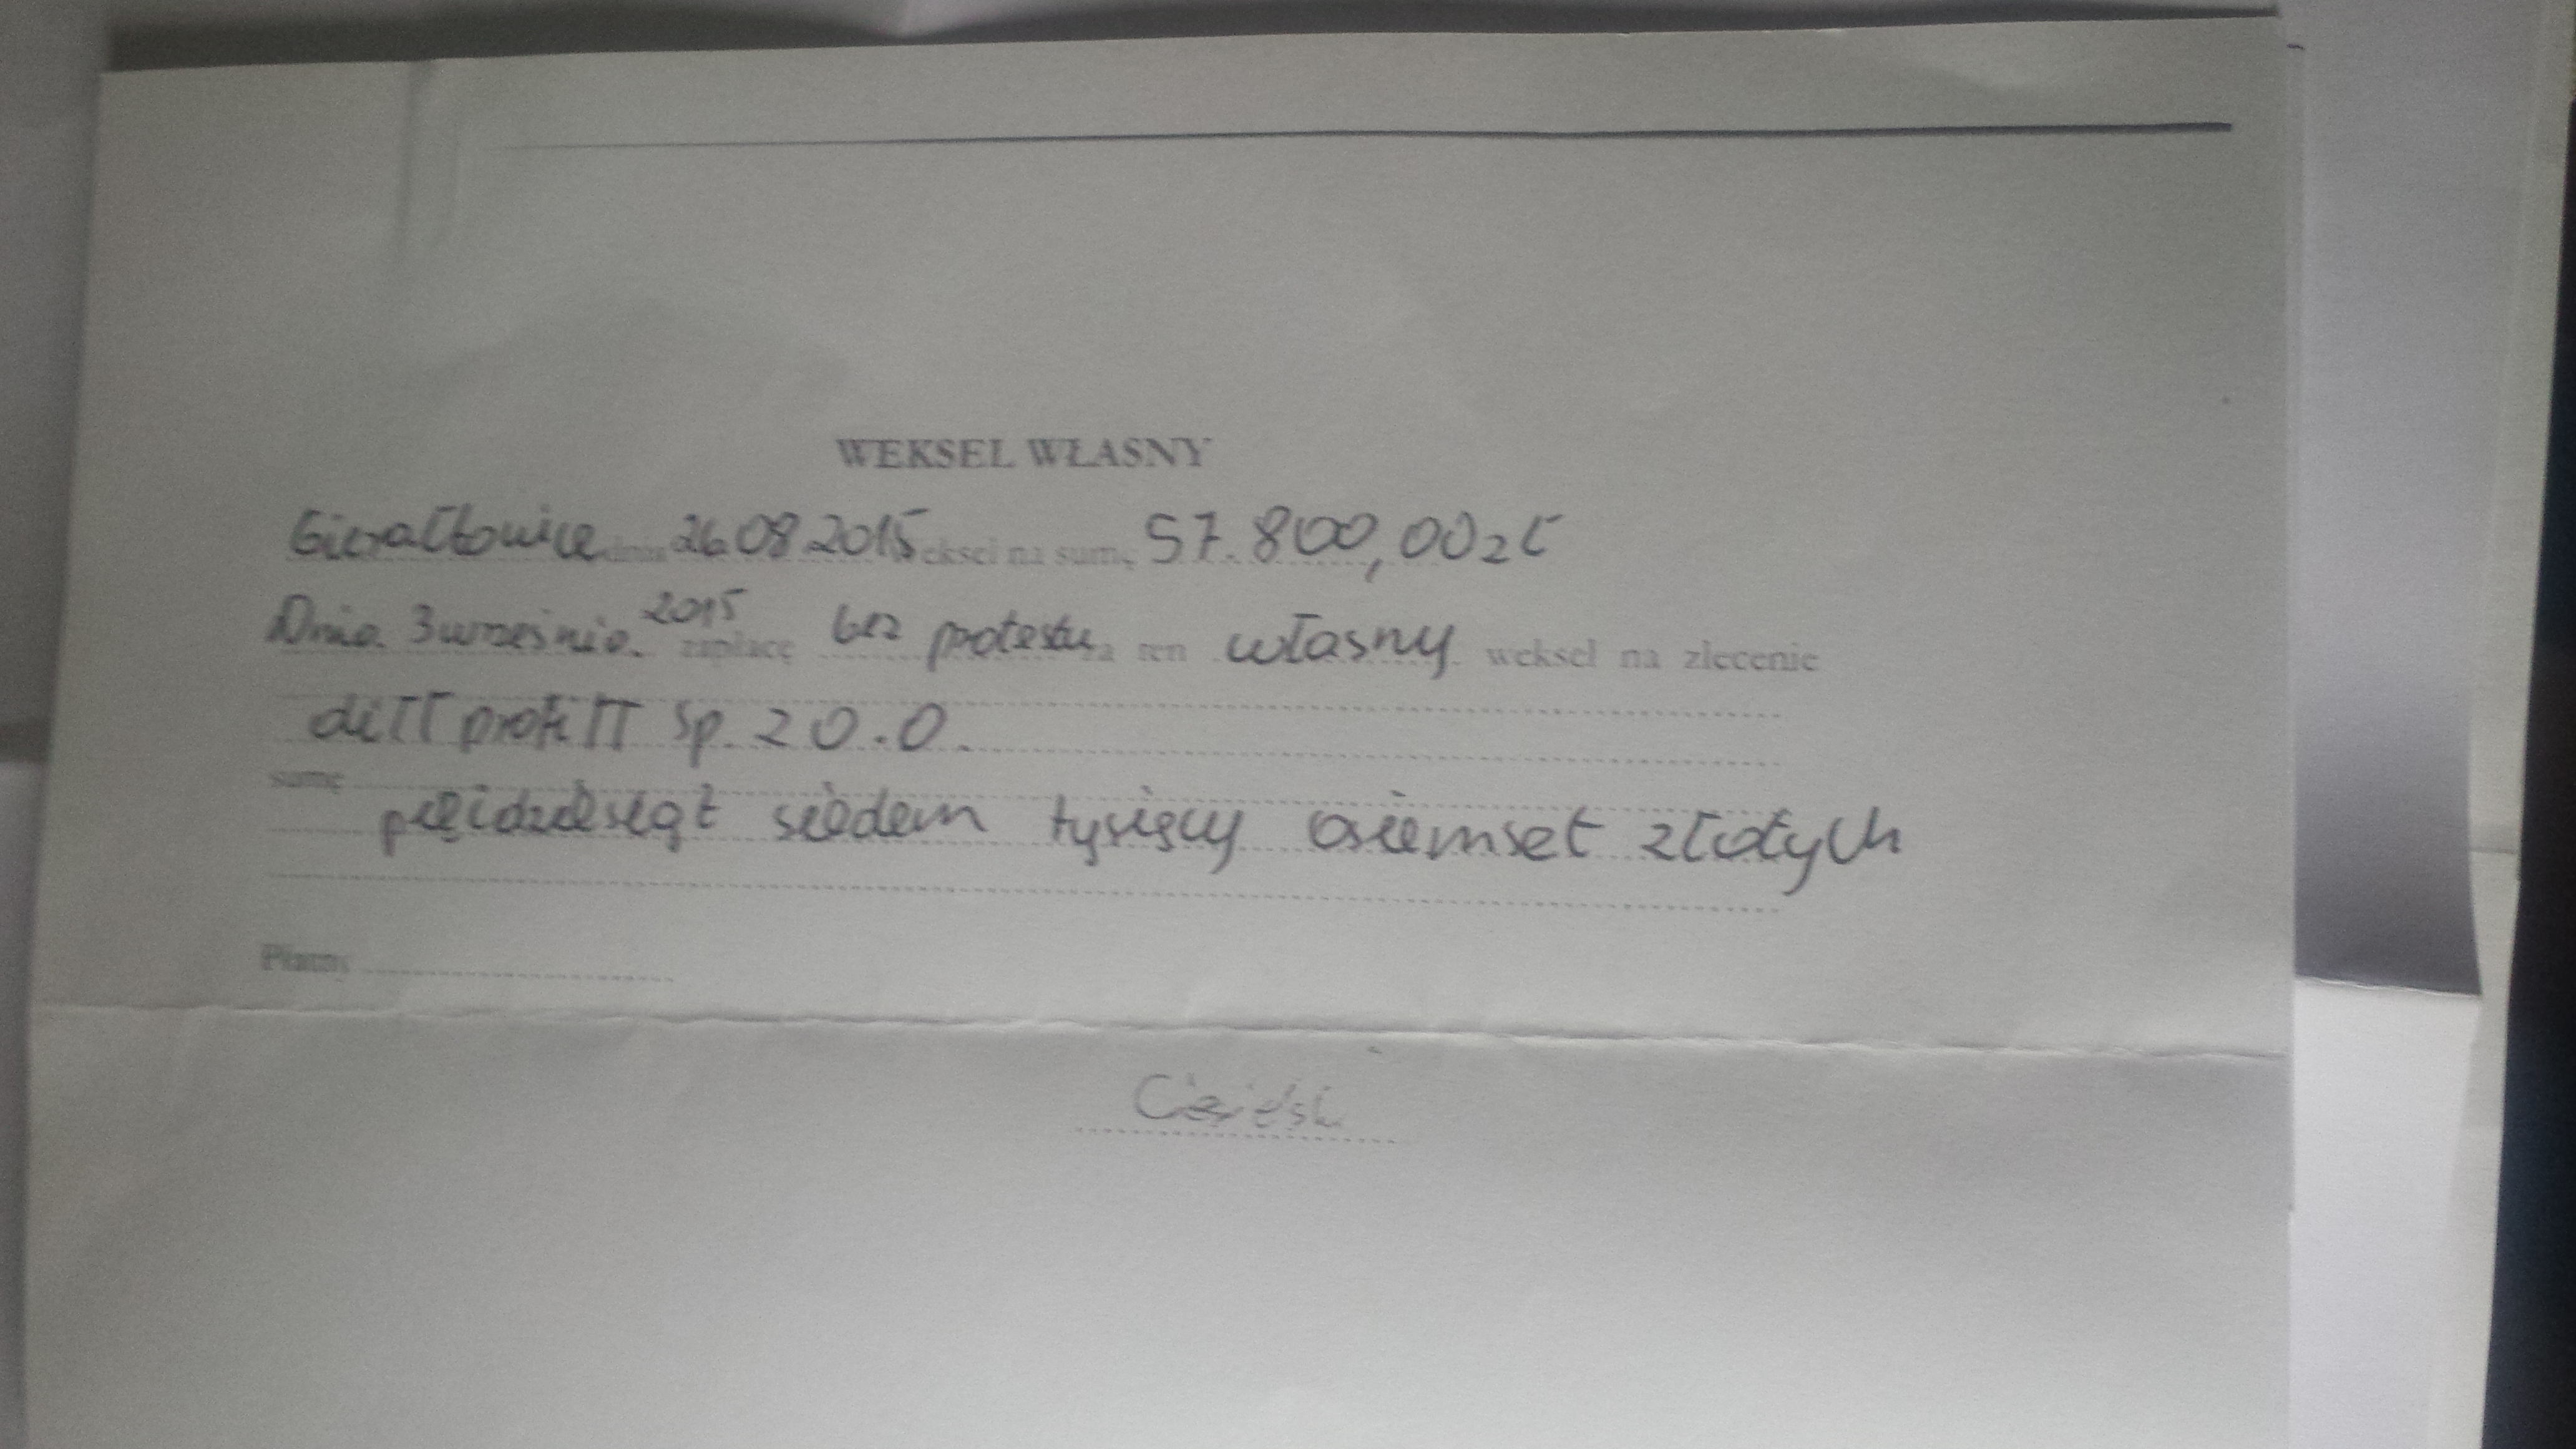 WEKSEL WŁASNY
Gierałtowice dnia 26.08.2015 weksel na sumę 57.800,00 zł
Dnia 3 września 2015 zapłacę bez protestu za ten własny weksel na zlecenie
sp. z o.o.
sumę
pięćdziesiąt siedem tysięcy osiemset złotych
Płatny